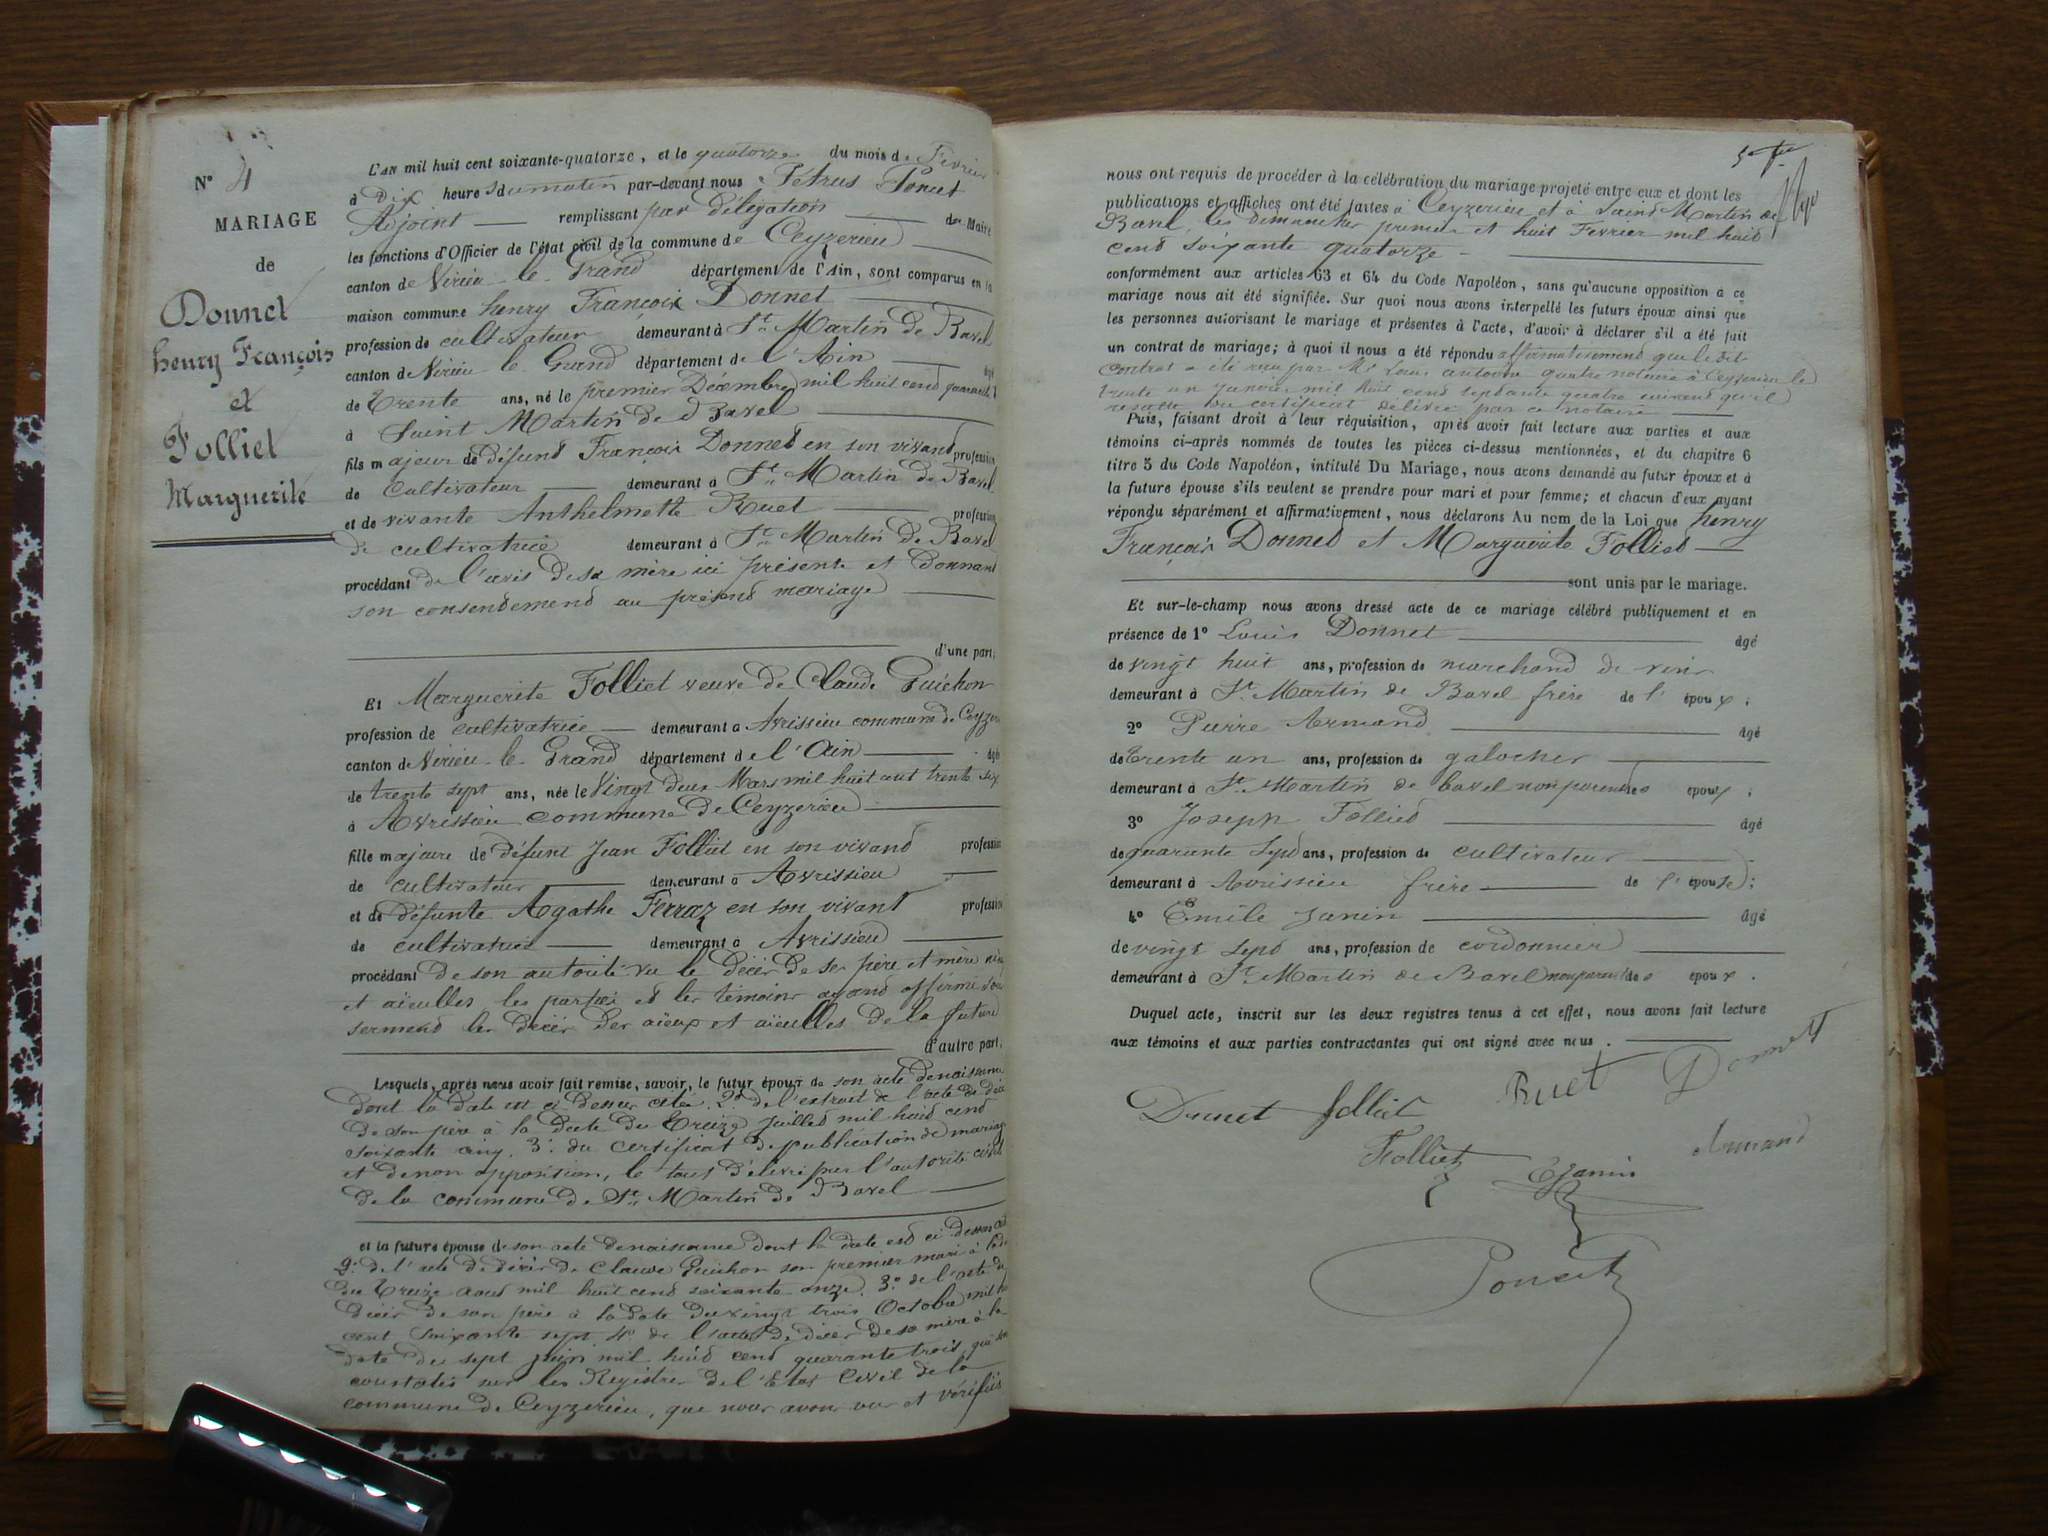 N° 4
MARIAGE
de
Donnet
henry François
et
Folliet
Marguerite
L'AN mil huit cent soixante-quatorze, et le quatorze du mois de Fevrier
à Dix heures du matin par-devant nous Pétrus Poncet
Adjoint remplissant par délégation du Maire
les fonctions d'Officier de l'état civil de la commune de Ceyzerieu
canton de Virieu le Grand département de l'Ain, sont comparus en la
maison commune henry François Donnet
profession de cultivateur demeurant à St Martin de Bavel
canton de Virieu le Grand département de l'Ain âgé
de Trente ans, né le premier Décembre mil huit cend quarante
à Saint Martin de Bavel
fils majeur de défund François Donned en son vivand profession
de Cultivateur demeurant à St Martin de Bavel
et de vivante Anthelmette Ruet profession
de cultivatrice demeurant à St Martin de Bavel
procédant de l'avis de sa mère ici présente et donnand
son consendemend au présend mariage
d'une part;
Et Marguerite Folliet veuve de Claude Guichon
profession de cultivatrice demeurant à Avrissieu commune de Ceyzer
canton de Virieu le Grand département de l'Ain âgée
de trente sept ans, née le Vingt deux Mars mil huit cent trente six
à Avrissieu commune de Ceyzerieu
fille majeure de défunt Jean Folliet en son vivand profession
de cultivateur demeurant à Avrissieu
et de défunte Agathe Ferraz en son vivant profession
de cultivatrice demeurant à Avrissieu
procédant de son autorité vu le décès de ses père et mère
et aïeulles les parties et les témoins ayand affirmé sous
sermend les décès des aïeux et aïeulles de la future
d'autre part;
Lesquels, après nous avoir fait remise, savoir, le futur époux de son acte de naissance
dont la date est ci dessus citée. 2° de l'extrait de l'acte de décè
de son père à la date du Treize Juilled mil huid cend
soixante cinq. 3° du certificat de publication de mariage
et de non opposition, le tout délivré par l'autorité civile
de la commune de St Martin de Bavel
et la future épouse de son acte de naissance dont la date esd ci dessus
2° de l'acte de décès de Claude Guichon son premier mari à la
du Treize aout mil huit cend soixante onze. 3° de l'acte de
décès de son père à la date du vingt trois Octobre mil
cent soixante sept 4° de l'acte de décès de sa mère à la
date du sept juin mil huid cend quarante trois, qui
constatés sur les Registres de l'Etat Civil de la
commune de Ceyzerieu, que nous avons vus et vérifiés
nous ont requis de procéder à la célébration du mariage projeté entre eux et dont les
publications et affiches ont été faites à Ceyzerieu et à Saind Martin de
Bavel, les dimanches premier et huit Fevrier mil huid
cend soixante quatorze
conformément aux articles 63 et 64 du Code Napoléon, sans qu'aucune opposition à ce
mariage nous ait été signifiée. Sur quoi nous avons interpellé les futurs époux ainsi que
les personnes autorisant le mariage et présentes à l'acte, d'avoir à déclarer s'il a été fait
un contrat de mariage; à quoi il nous a été répondu affirmativemend que le dit
contrat a été reçu par Me notaire à Ceyzerieu le
trente un Janvier mil huit cend septante quatre suivand qu'il
resulte du certificat délivré par ce notaire
Puis, faisant droit à leur réquisition, après avoir fait lecture aux parties et aux
témoins ci-après nommés de toutes les pièces ci-dessus mentionnées, et du chapitre 6
titre 5 du Code Napoléon, intitulé Du Mariage, nous avons demandé au futur époux et à
la future épouse s'ils veulent se prendre pour mari et pour femme; et chacun d'eux ayant
répondu séparément et affirmativement, nous déclarons Au nom de la Loi que henry
François Donned et Marguerite Folliet
sont unis par le mariage.
Et sur-le-champ nous avons dressé acte de ce mariage célébré publiquement et en
présence de 1° Louis Donnet âgé
de vingt huit ans, profession de marchand de vins
demeurant à St Martin de Bavel frère de l'époux;
2° Pierre Armand âgé
de Trente un ans, profession de galocher
demeurant à St Martin de bavel non parend des époux;
3° Joseph Follied âgé
de quarante sepd ans, profession de cultivateur
demeurant à Avrissieu frère de l'épouse;
4° Emile Janin âgé
de vingt sepd ans, profession de cordonnier
demeurant à St Martin de Bavel non parend des époux.
Duquel acte, inscrit sur les deux registres tenus à cet effet, nous avons fait lecture
aux témoins et aux parties contractantes qui ont signé avec nous.
Ruet Donnet
Donnet folliet
Folliet EJanin Armand
Poncet